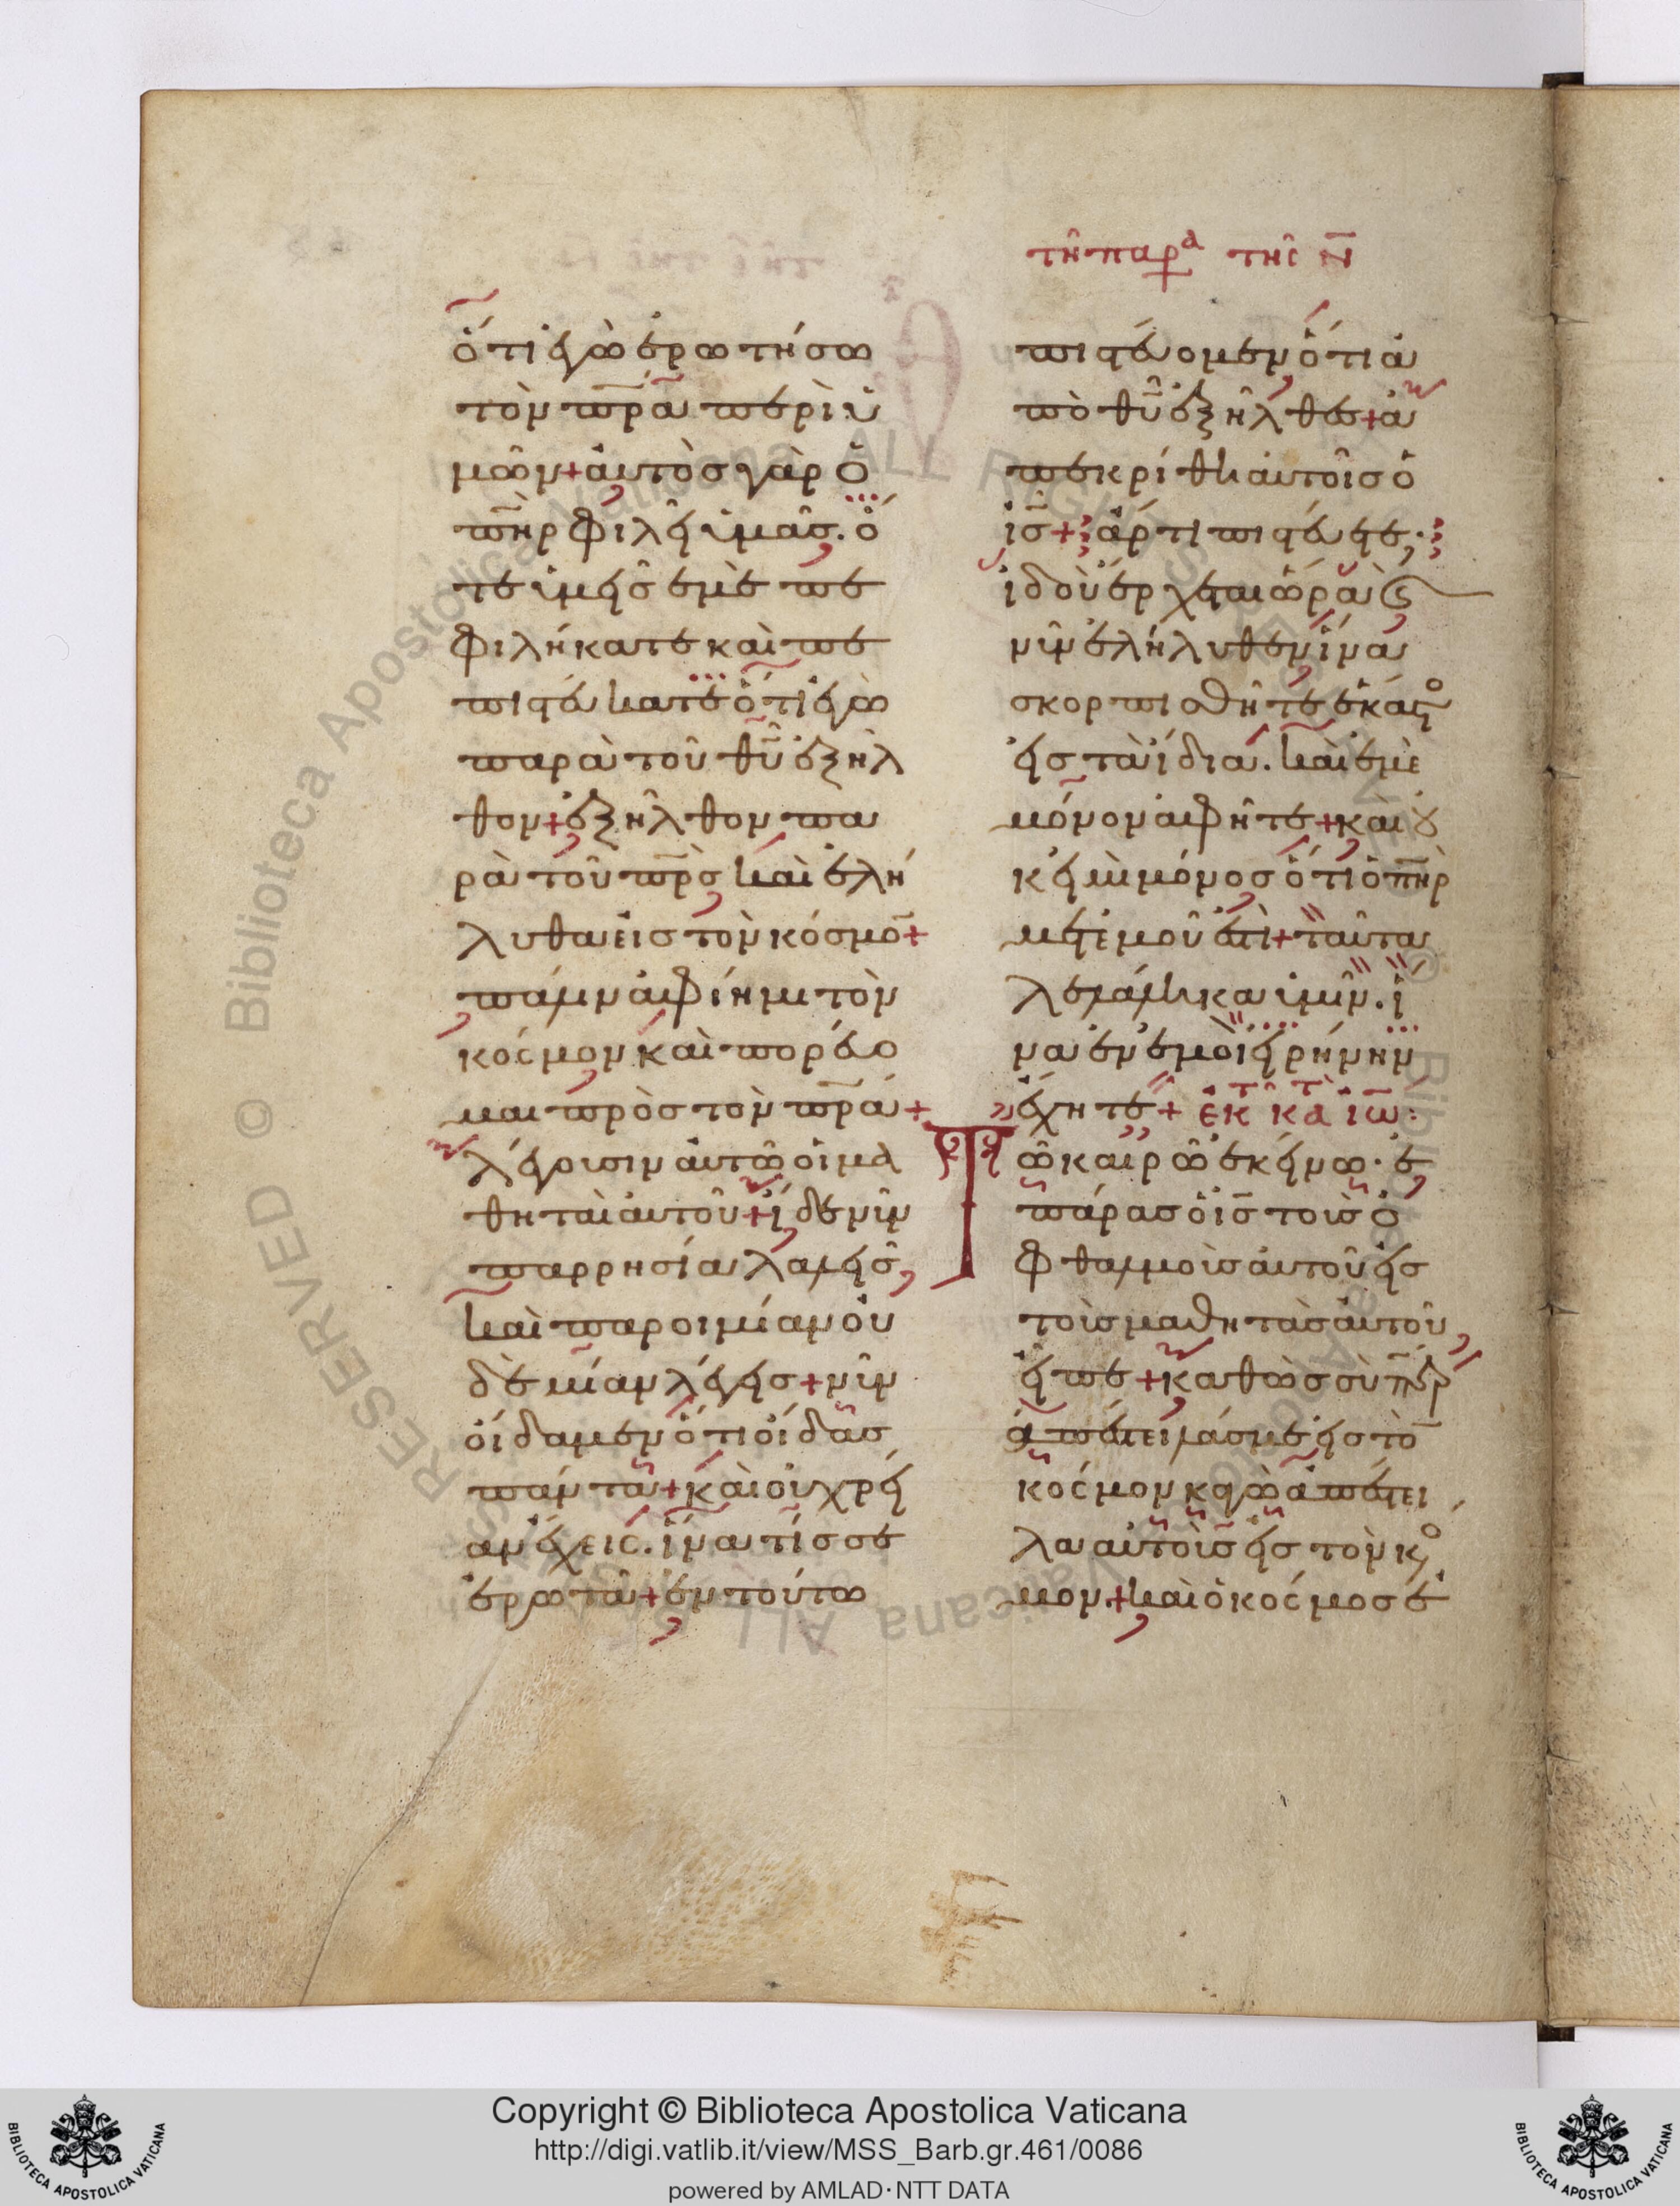 τῆ παρα τῆς Ν
ὅτι ἐγὼ ἐρωτήσω
τὸν πρ̅α περὶ ὑ
μῶν + αὐτὸς γὰρ ὁ
πη̅ρ φιλεῖ ὑμᾶς. ὅ
τε ὑμεῖς ἐμὲ πε
φιλήκατε καὶ πε
πιστεύκατε ὅτι ἐγὼ
παρὰ τοῦ θυ̅ ἐξηλ
θον + ἐξῆλθον πα
ρὰ τοῦ πρ̅ς καὶ ἐλή
λυθα εἰς τὸν κόσμο̅ +
πάλιν ἀφίημι τὸν
κόσμον καὶ πορεύο
μαι πρὸς τὸν πρ̅α +
λέγουσιν αὐτῶ οἱ μα
θηταὶ αὐτοῦ + ἴδε νῦν
παρρησία λαλεῖς
καὶ παροιμίαν οὐ
δὲ μίαν λέγεις + νῦν
οἴδαμεν ὅτι οἶδας
πάντα + καὶ οὐ χρεί
αν ἔχεις. ἵνα τίς σε
ἐρωτᾶ + ἐν τούτω
πιστεύομεν ὅτι ἀ
πὸ θυ̅ ἐξῆλθες + ἀ
πεκρίθη αὐτοῖς ὁ
ις̅ + ἄρτι πιστεύετε·
ἰδοὺ ἔρχεται ὥρα καὶ
νῦν ἐλήλυθεν ἵνα
σκορπισθῆτε ἕκαστο
εἰς τὰ ἴδια. καὶ ἐμὲ
μόνον ἀφῆτε + καὶ οὐ
κ εἰμὶ μόνος ὅτι ὁ πη̅ρ
μετ ἐμοῦ ἐστὶ + ταῦτα
λελάληκα ὑμῖν. ἵ
να ἐν ἐμοὶ εἰρήνην
ἔχητε + ἐκ τ κατ ἰω:
Τῶ καιρῶ ἐκείνω· ἐ
πάρας ὁ ις̅ τοὺς ὀ
φθαλμοὺς αὐτοῦ εἰς
τοὺς μαθητὰς αὐτοῦ,
εἶπε + καθὼς σὺ πε̅ρ
ἀπέστειλάς με εἰς τὸ̅
κόσμον κἀγὼ ἀπέστει
λα αὐτοὺς εἰς τὸν κό
μον. + καὶ ὁ κόσμος ἐ
Copyright © Biblioteca Apostolica Vaticana
http://digi.vatlib.it/view/MSS_Barb.gr.461/0086
powered by AMLAD·NTT DATA
BIBLIOTECA APOSTOLICA VATICANA
BIBLIOTECA APOSTOLICA VATICANA